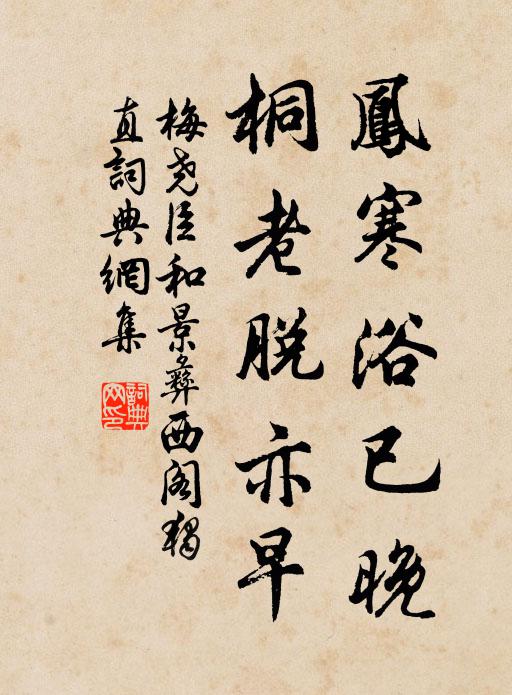 鳳寒浴已晚
桐老脫亦早
梅堯臣和景彝西閣獨
直詞典網集
詞典
网印